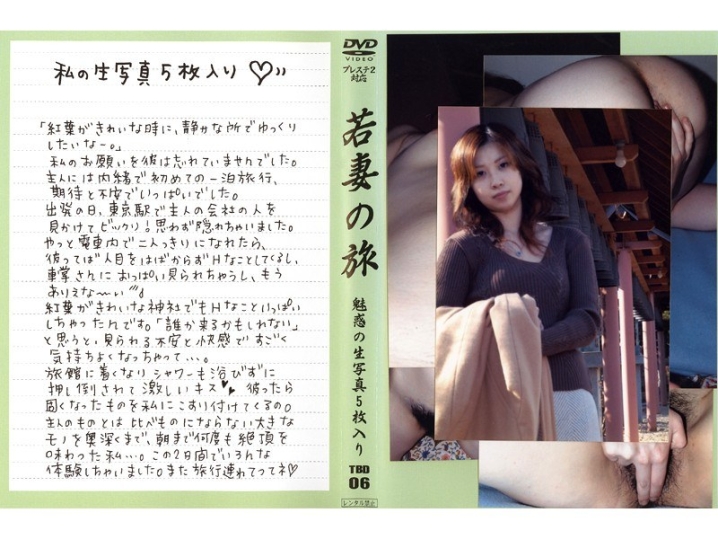 私の生写真5枚入り♡
「紅葉がきれいな時に、静かな所でゆっくり
したいなー。」
私のお願いを彼は忘れていませんでした。
主人には内緒で初めての一泊旅行、
期待と不安でいっぱいでした。
出発の日、東京駅で主人の会社の人を
見かけてビックリ!思わず隠れちゃいました。
やっと電車内で二人っきりになれたら、
彼ってば人目をはばからずHなことしてくるし、
車掌さんにおっぱい見られちゃうし、もう
ありえな〜い
紅葉がきれいな神社でもHなこといっぱい
しちゃったんです。「誰か来るかもしれない」
と思うと、見られる不安と快感ですごく
気持ちよくなっちゃって...。
旅館に着くなりシャワーも浴びずに
押し倒されて激しいキス♥♥ 彼ったら
固くなったものを私にこすり付けてくるの。
主人のものとは比べものにならない大きな
モノを奥深くまで、朝まで何度も絶頂を
味わった私...。この2日間でいろんな
体験しちゃいました。また旅行連れてってネ♡
DVD
VIDEO
プレステ2
対応
若妻の旅
魅惑の生写真5枚入り
TBD
06
レンタル禁止